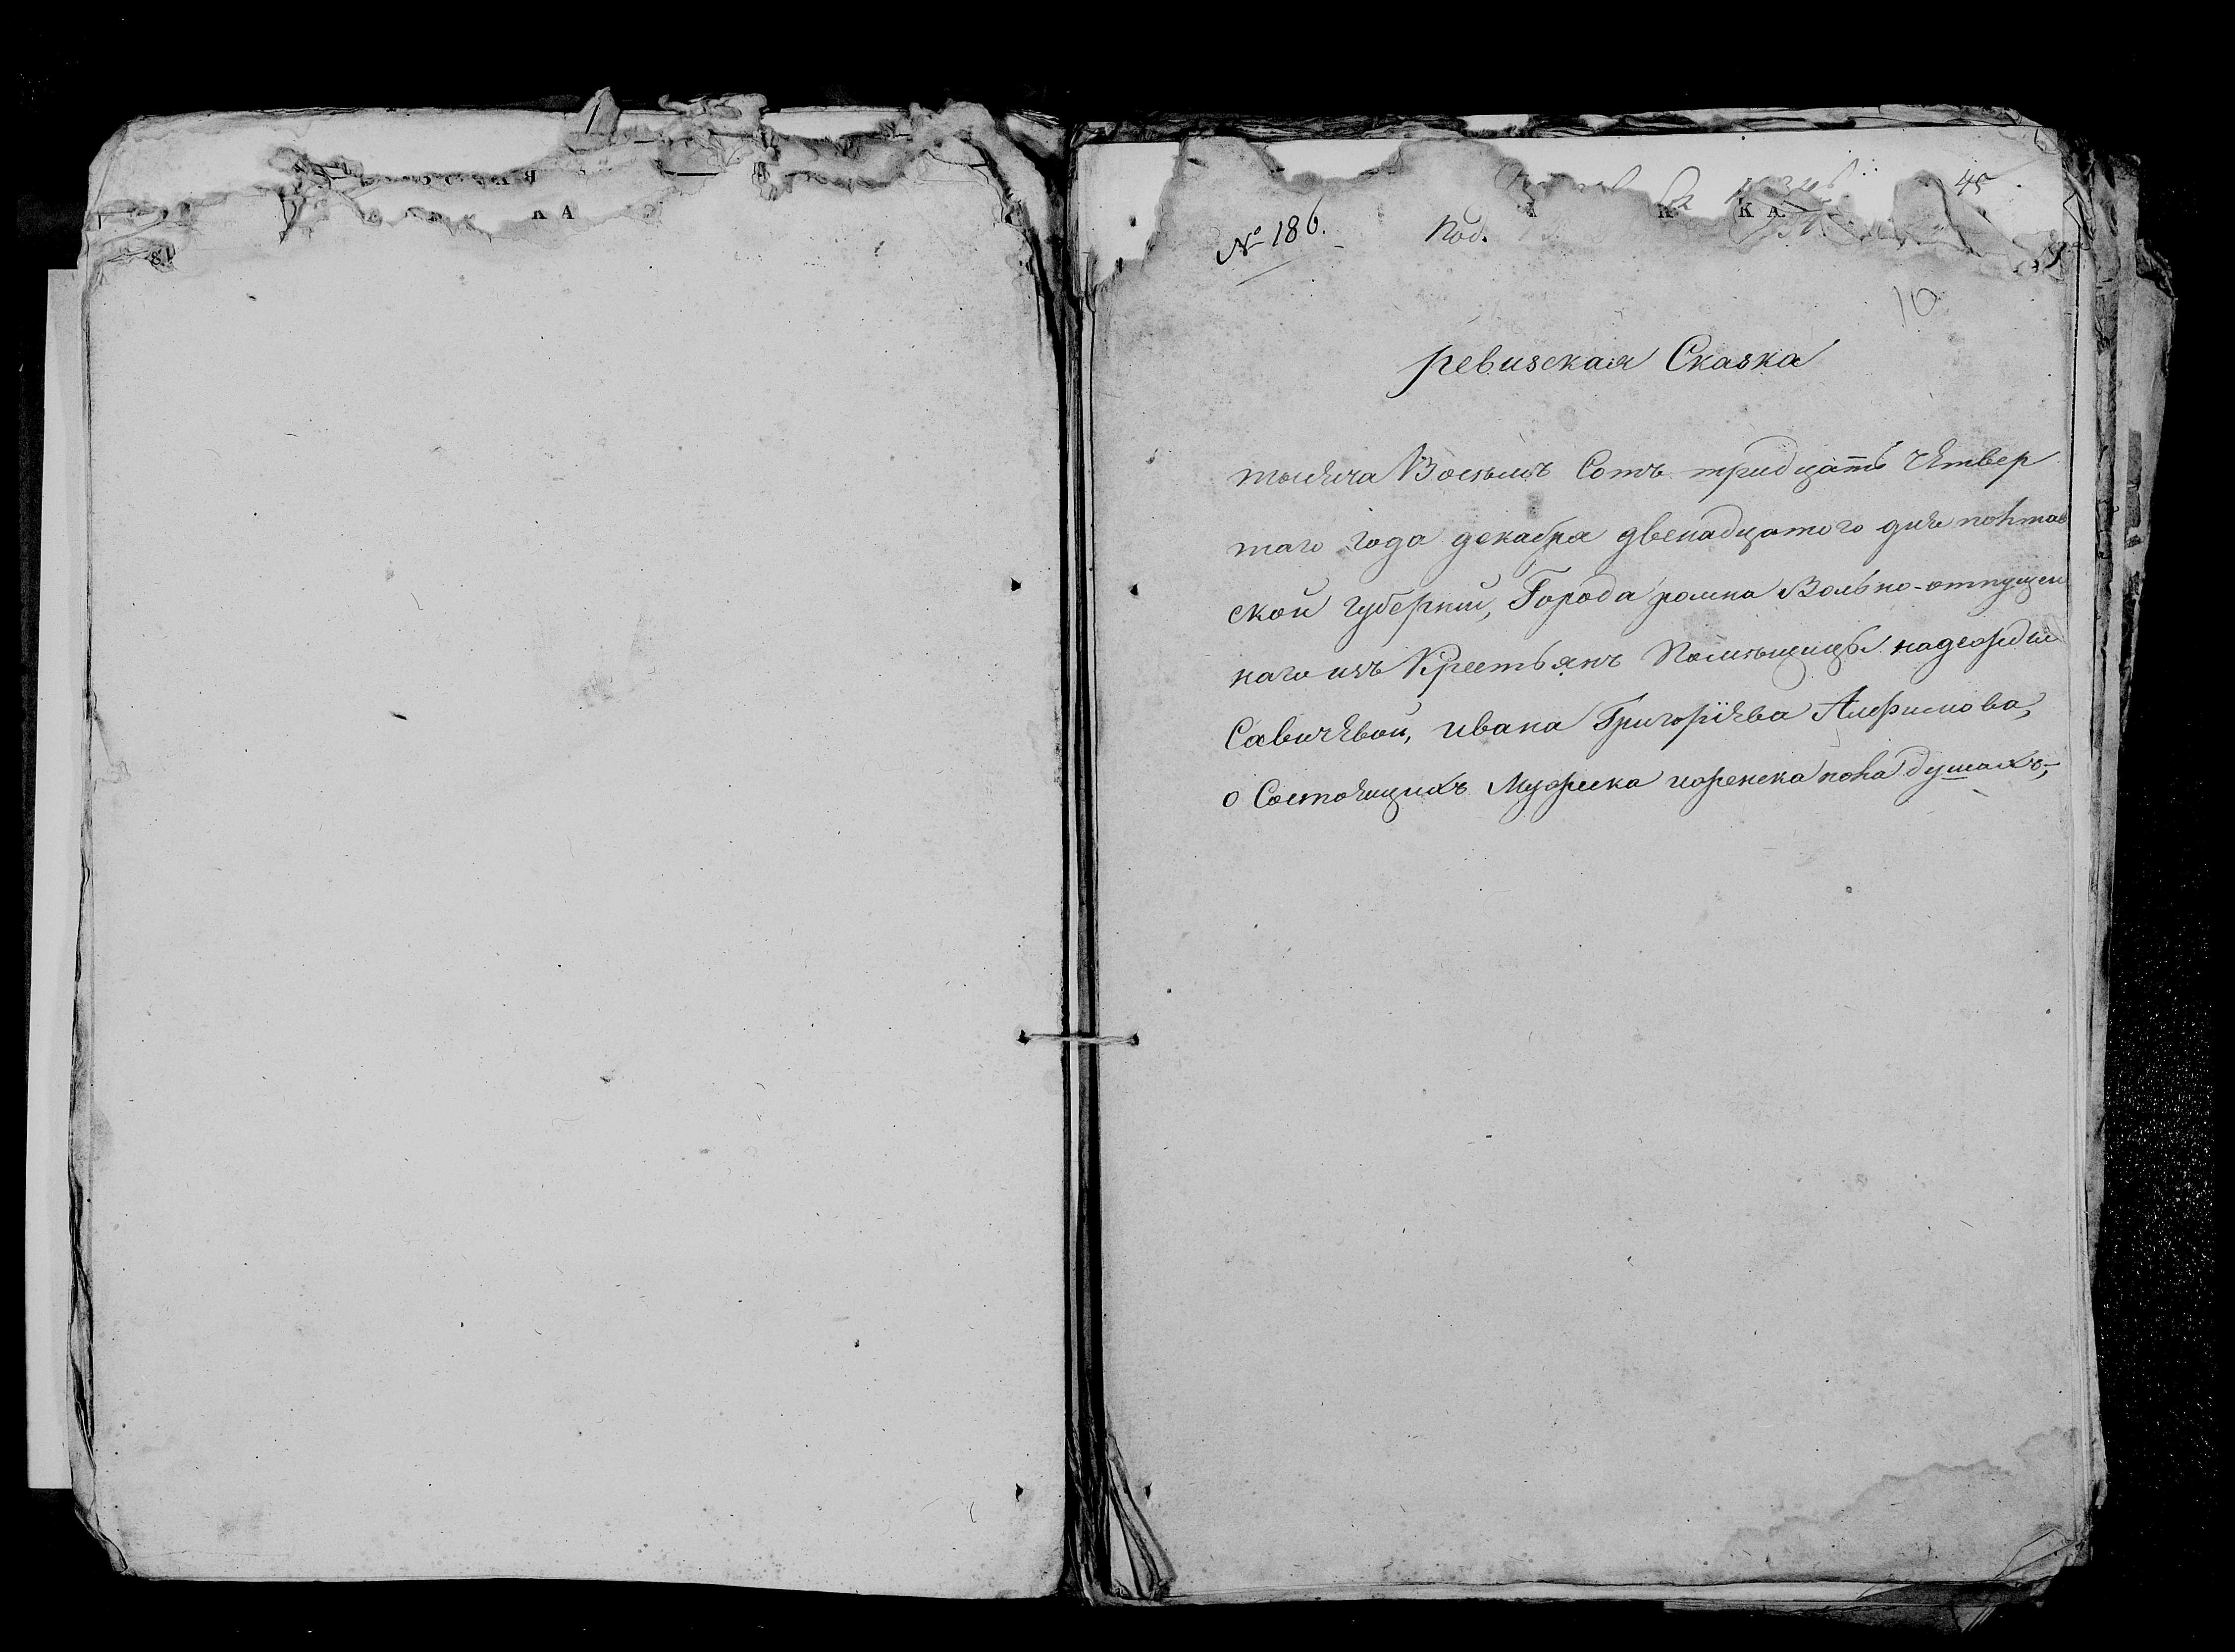 № 186.
Под.
45
10
ревизская Сказка
тысяча Восемъ Сотъ тридцать четвер
таго года декабря двенадцатого дня полтав
ской губернии, Города ромна Вольно-отпущен
наго изъ Крестьянъ Помѣщицы надежды
Савичевой, ивана Григорїева
о Состоящихъ Мужеска иженска пола душахъ,